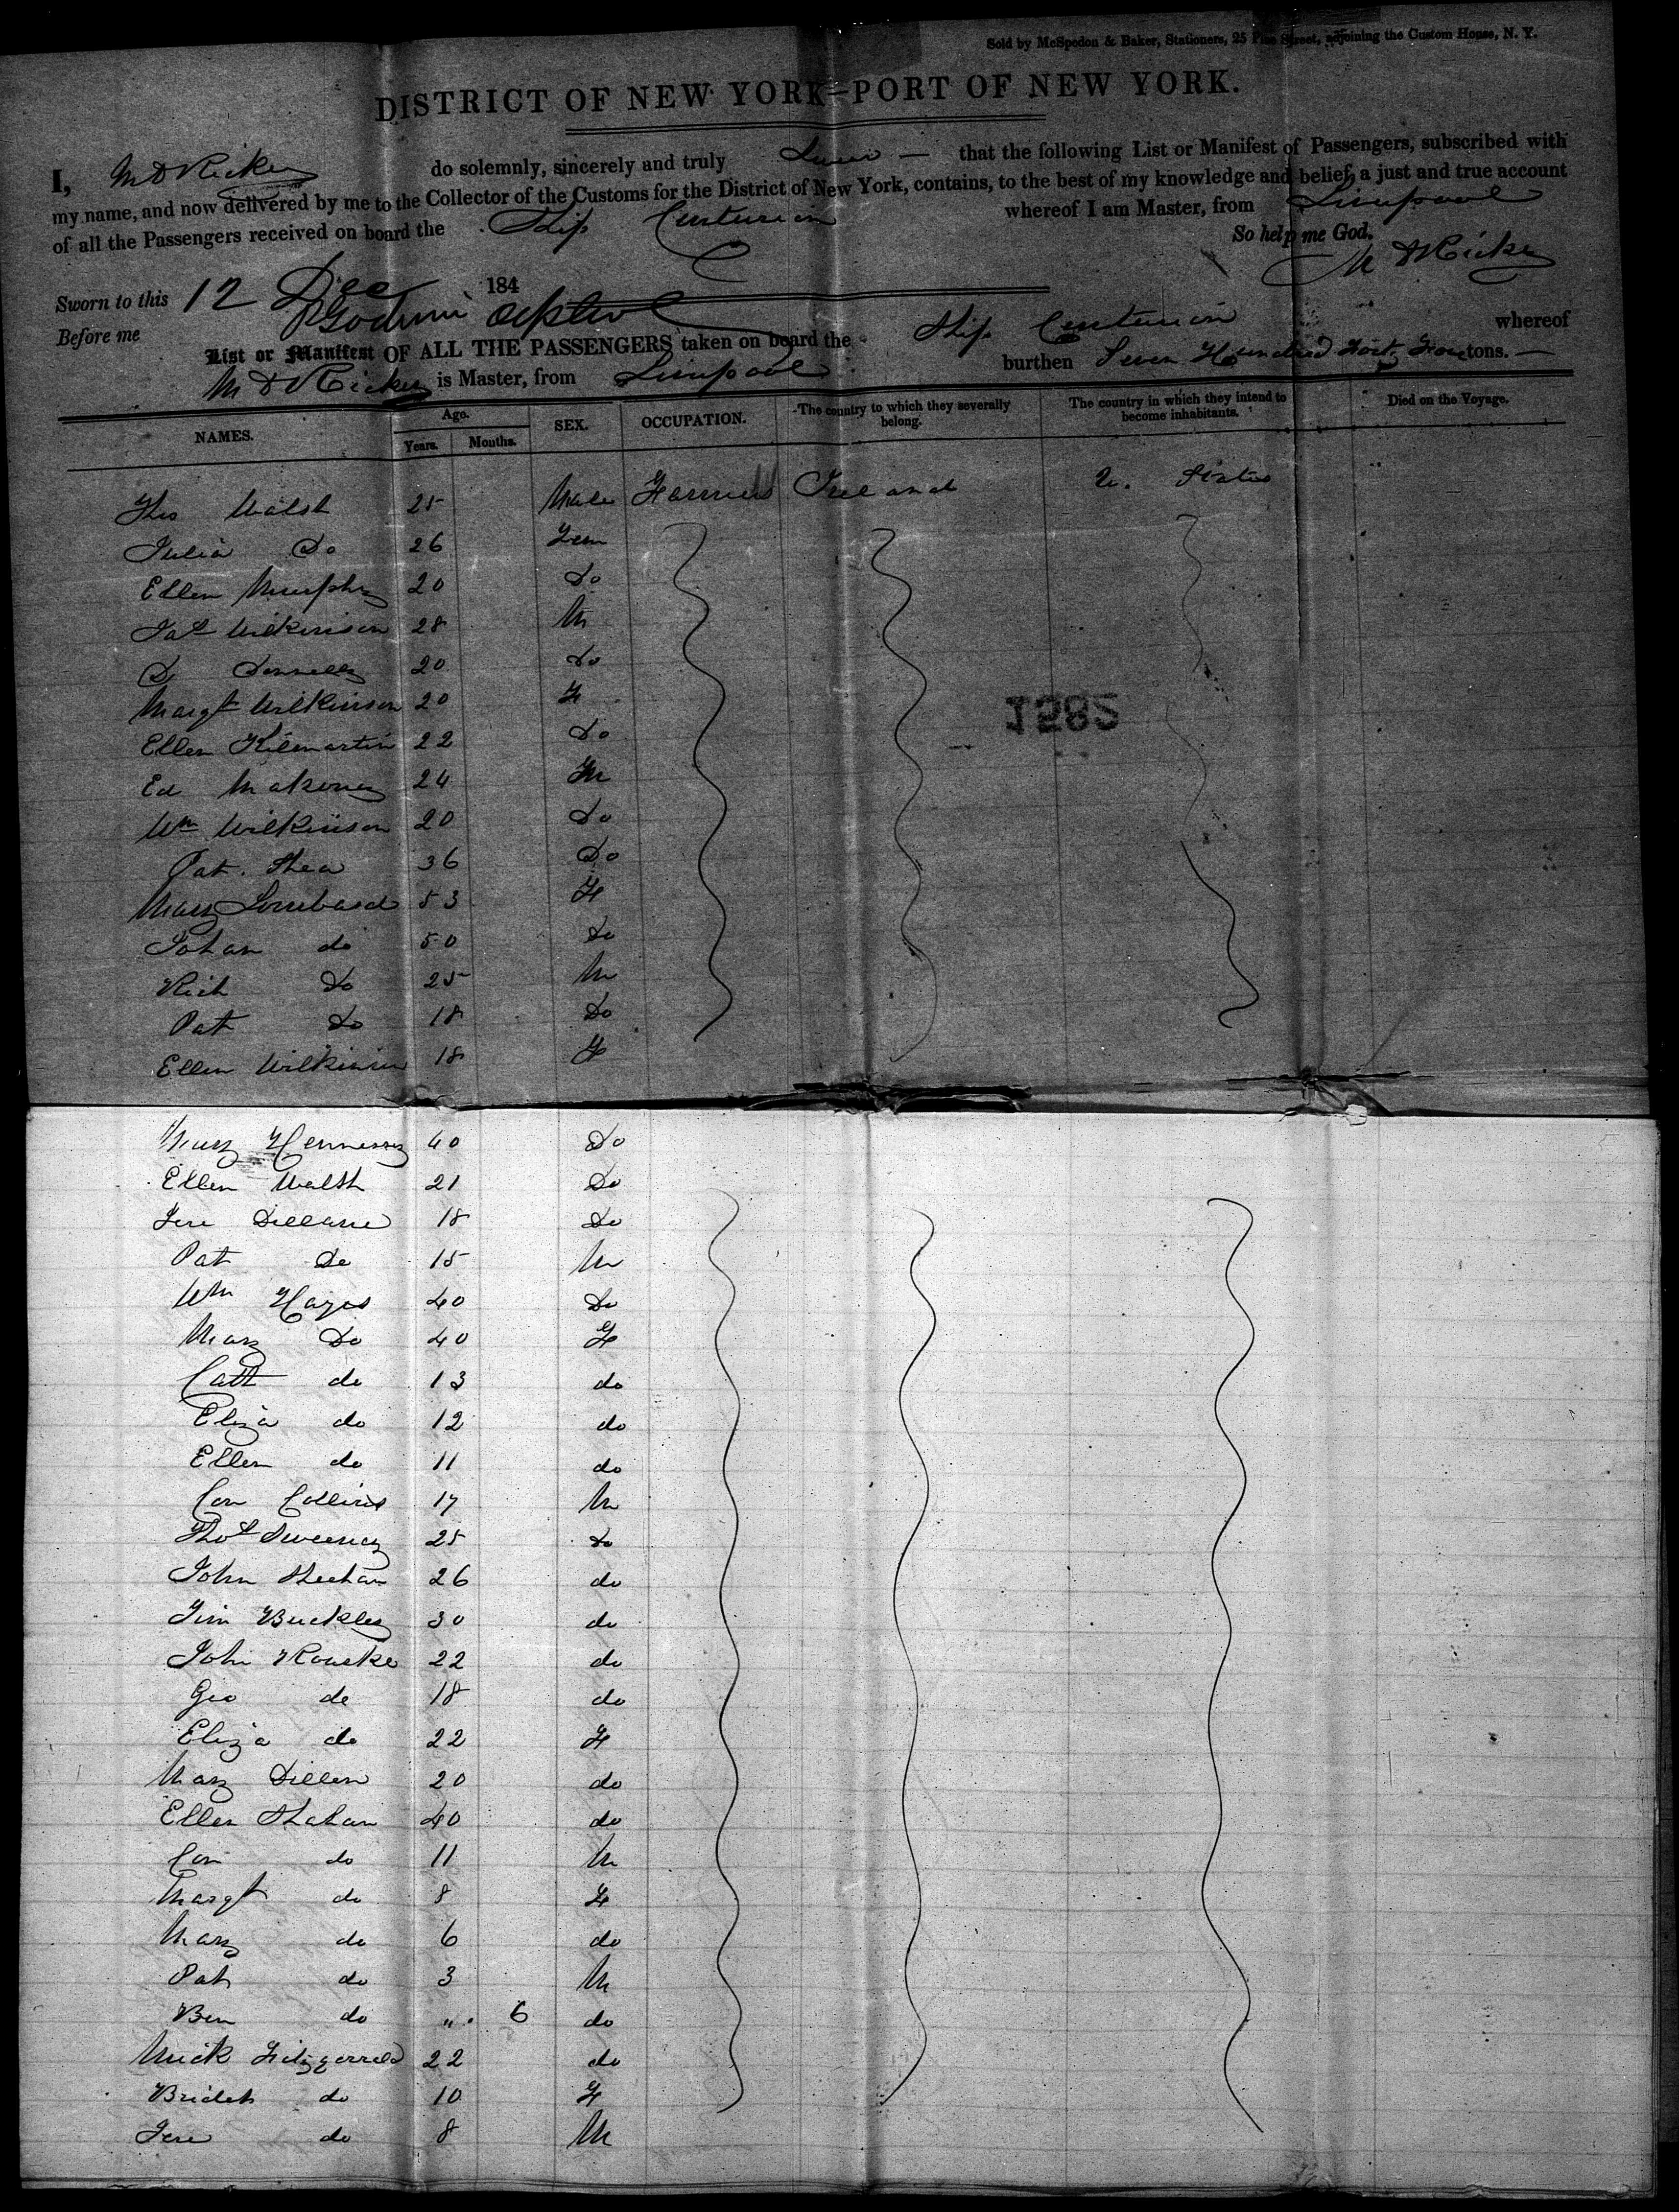 Sold by McSpedon & Baker, Stationers, 25 Pine Street, adjoining the Custom House, N. Y.
DISTRICT OF NEW YORK—PORT OF NEW YORK.
I, M D Ricker do solemnly, sincerely and truly swear — that the following List or Manifest of Passengers, subscribed with
my name, and now delivered by me to the Collector of the Customs for the District of New York, contains, to the best of my knowledge and belief, a just and true account
of all the Passengers received on board the Ship Centurion whereof I am Master, from Liverpool
So help me God.
M D Ricker
Sworn to this 12 Dec 184
Before me
List or Manifest OF ALL THE PASSENGERS taken on board the Ship Centurion whereof
M D Ricker is Master, from Liverpool burthen Seven Hundred Forty Four tons. —
NAMES. Age. Years. Months. SEX. OCCUPATION. The country to which they severally belong. The country in which they intend to become inhabitants. Died on the Voyage.
Thos Walsh 25 Male Farmers Ireland U. States
Julia Do 26 Fem
Ellen Murphy 20 Do
Jas Wilkinson 28 M
D Donnelly 20 Do
Margt Wilkinson 20 F
Ellen Kilmartin 22 Do
Ed Mahoney 24 M
Wm Wilkinson 20 Do
Pat. Shea 36 Do
Mary Lombard 53 F
Johan do 50 Do
Rich Do 25 M
Pat Do 18 Do
Ellen Wilkinson 18 F
1282
Mary Hennessy 40 Do
Ellen Walsh 21 Do
Jere Dillane 18 Do
Pat Do 15 M
Wm Hayes 40 Do
Mary Do 40 F
Cath do 13 do
Eliza do 12 do
Ellen do 11 do
Con Collins 17 M
Thos Sweeney 25 Do
John Sheehan 26 do
Tim Buckley 30 do
John Rourke 22 do
Geo do 18 do
Eliza do 22 F
Mary Dillon 20 do
Ellen Shahan 40 do
Con do 11 M
Margt do 8 F
Mary do 6 do
Pat do 3 M
Ben do " 6 do
Mick Fitzgerrald 22 do
Bridet do 10 F
Jere do 8 M